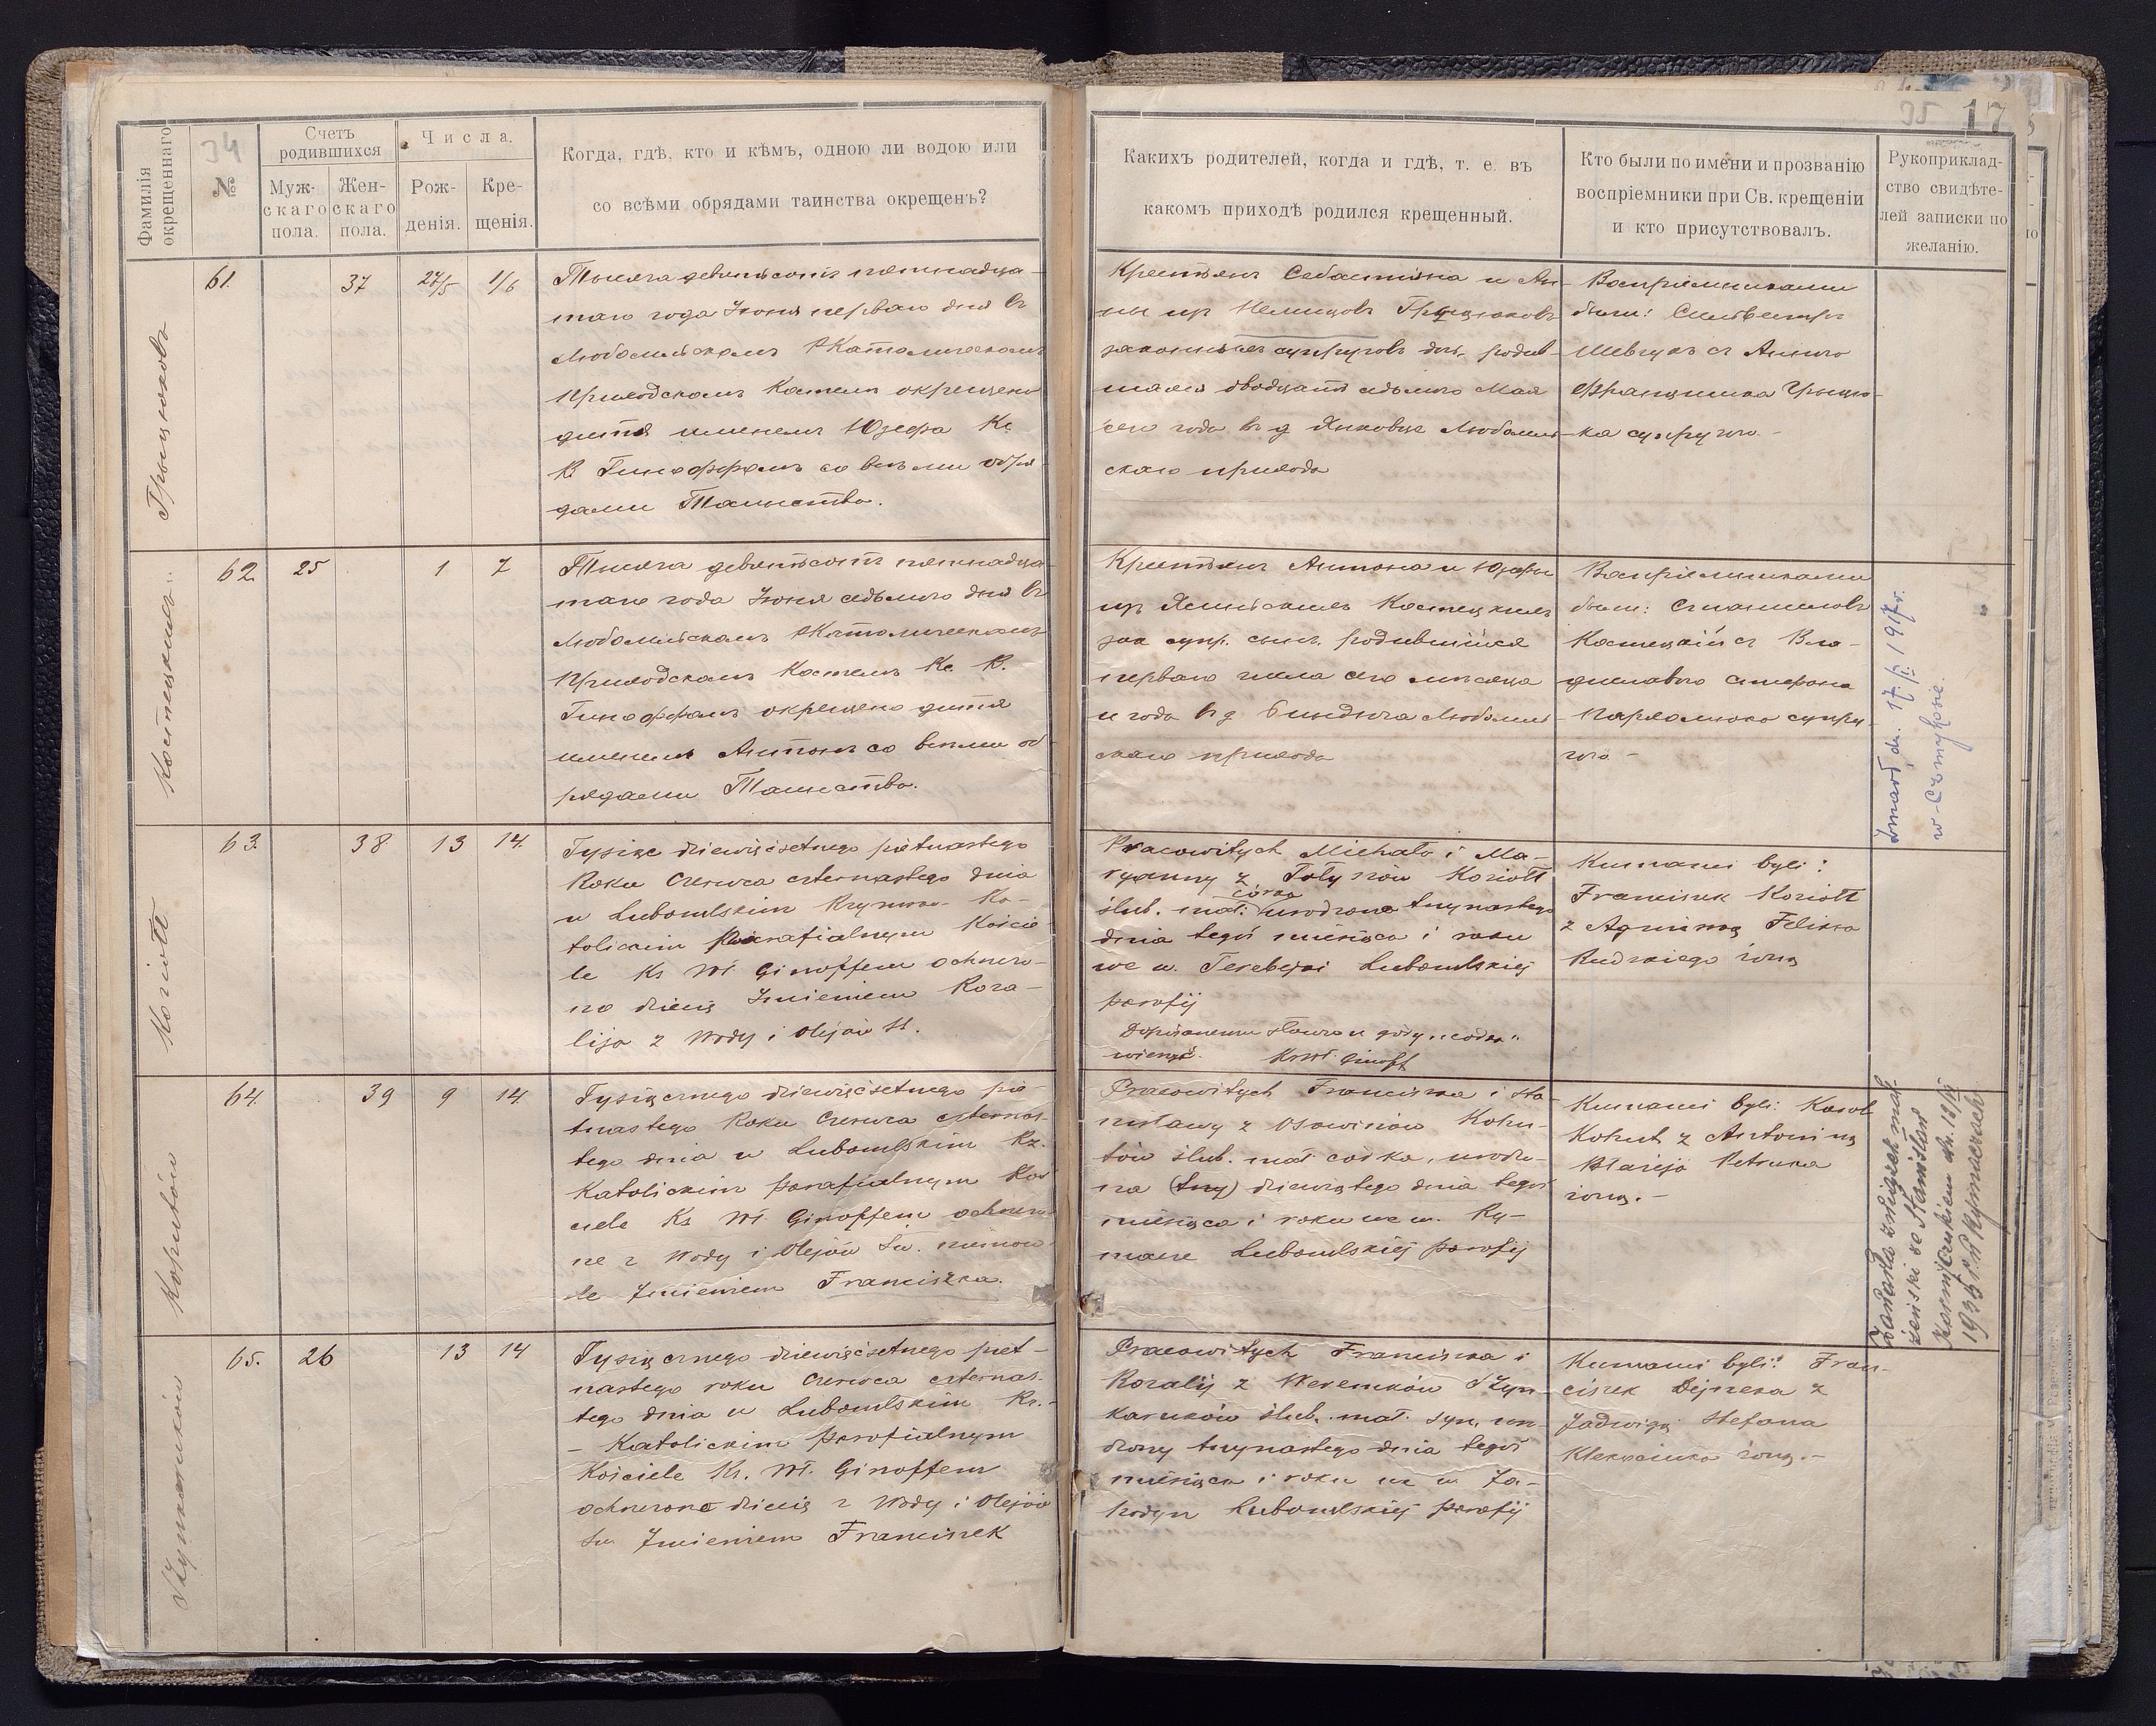 34
Фамилія окрещеннаго
№
Счетъ родившихся
Мужскаго пола.
Женскаго пола.
Числа.
Рожденія.
Крещенія.
Когда, гдѣ, кто и кѣмъ, одною ли водою или
со всѣми обрядами таинства окрещенъ?
35 17
Какихъ родителей, когда и гдѣ, т. е. въ
какомъ приходѣ родился крещенный.
Кто были по имени и прозванію
воспріемники при Св. крещеніи
и кто присутствовалъ.
Рукоприклад-
ство свидѣте-
лей записки по
желанію.
Грыцюковъ
61. 37 27/5 1/6
Тысяча девятьсотъ пятнадца-
таго года Іюня перваго дня въ
Любомльскомъ РКатолическомъ
Приходскомъ Костелѣ окрещено
дитя именемъ Юзефа Кс.
В. Гиноффомъ со всѣми обря-
дами Таинства.
Крестьянъ Себастіана и Ан-
ны изъ Немицовъ Грыцюковъ
законныхъ супруговъ дочь, родив-
шаяся двадцать седьмого Мая
сего года въ д Янковцѣ Любомль-
скаго прихода
Воспріемниками
были: Сильвестръ
Шевчукъ съ Анною
Францишка Грыцю-
ка супругою.-
Костецкихъ
62. 25 1 7
Тысяча девятьсотъ пятнадца-
таго года Іюня седьмого дня въ
Любомльскомъ РКатолическомъ
Приходскомъ Костелѣ Кс. В.
Гиноффомъ окрещено дитя
именемъ Антонъ со всѣми об-
рядами Таинства.
Крестьянъ Антона и Юзефы
изъ Ясинскихъ Костецкихъ
зак супр. сынъ, родившійся
перваго числа сего мѣсяца
и года въ д Биндюга Любомль-
скаго прихода
Воспріемниками
были: Станиславъ
Костецкій съ Вла-
диславою Стефана
Пархомюка супру-
гою -
źmarł dn. 17/II 1917 r.
w Czmykosie.
Koziołł
63. 38 13 14.
Tysiąc dziewięćsetnego piętnastego
Roku Czerwca czternastego dnia
w Lubomlskim Rzymsko- Ka-
tolickim Parafialnym Koście
le Ks Wł Ginoffem ochrzczo-
no dziecię Imieniem Roza-
lija z Wody i Olejów St.
Pracowitych Michała i Ma-
ryanny z Tołyszów Koziołł
ślub. mał: córka urodzona trzynastego
dnia tegoż miesiąca i roku
we w. Terebejki Lubomlskiej
parafij
Ks Wł. Ginoff
Kumami byli:
Franciszek Koziołł
z Agnieszką Feliksa
Rudzkiego żoną
Kohutów
64. 39 9 14
Tysięcznego dziewięćsetnego pię-
tnastego Roku Czerwca czternas-
tego dnia w Lubomlskim Rz.
Katolickim parafialnym Koś
ciele Ks Wł Ginoffem ochrzczo
ne z Wody i Olejów Św. niemow-
le Imieniem Franciszka.
Pracowitych Franciszka i Sta-
nisławy z Osowiczów Kohu-
tów ślub. mał córka, urodzo-
na (trzy) dziewiątego dnia tegoż
miesiąca i roku we w. Ry-
mace Lubomlskiej parafij
Kumami byli: Karol
Kohut z Antoniną
Błażeja Petruka
żoną.-
Zawarła związek mał-
żeński ze Stanisław
Kornijczukiem dn. 18/II
1935 r. w Rymaczach.
Szynkaruków
65. 26 13 14
Tysięcznego dziewięćsetnego pięt-
nastego roku Czerwca czternas-
tego dnia w Lubomlskim Rz.-
- Katolickim parafialnym
Kościele Ks. Wł. Ginoffem
ochrzczone dziecię z Wody i Olejów
Św. Imieniem Franciszek
Pracowitych Franciszka i
Rozalij z Weremków Szyn-
karuków ślub. mał. syn, uro-
dzony trzynastego dnia tegoż
miesiąca i roku we w Za-
hodyn Lubomlskiej parafij
Kumami byli: Fran-
ciszek Dejneka z
Jadwigą Stefana
Klekociuka żoną.-